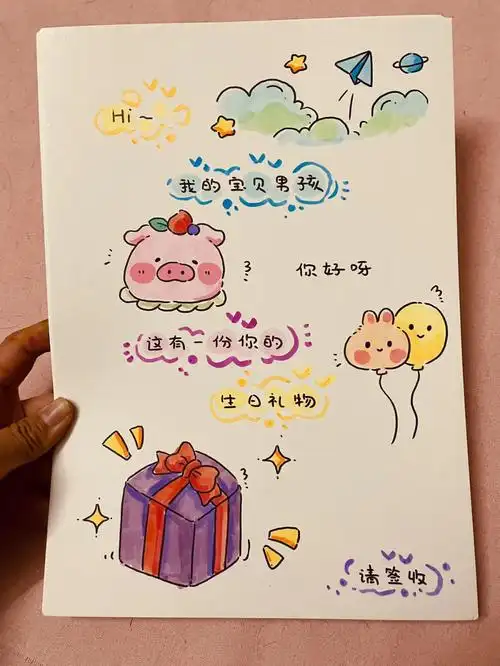 Hi~
我的宝贝男孩
你好呀
这有一份你的
生日礼物
请签收